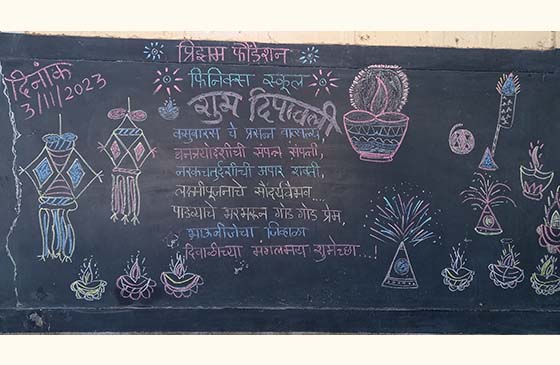 दिनांक
3/11/2023
प्रिझम फौंडेशन
फिनिक्स स्कूल
शुभ दिपावली
वसुबारस चे प्रसन्न वात्सल्य
धनत्रयोदशीची संपन्न संपत्ती,
नरकचतुर्दशीची अपार शक्ती,
लक्ष्मीपूजनाचे सौंदर्यवैभव...
पाडव्याचे भरभरून गोड गोड प्रेम,
भाऊबीजेचा जिव्हाळा
दिवाळीच्या मंगलमय शुभेच्छा...!